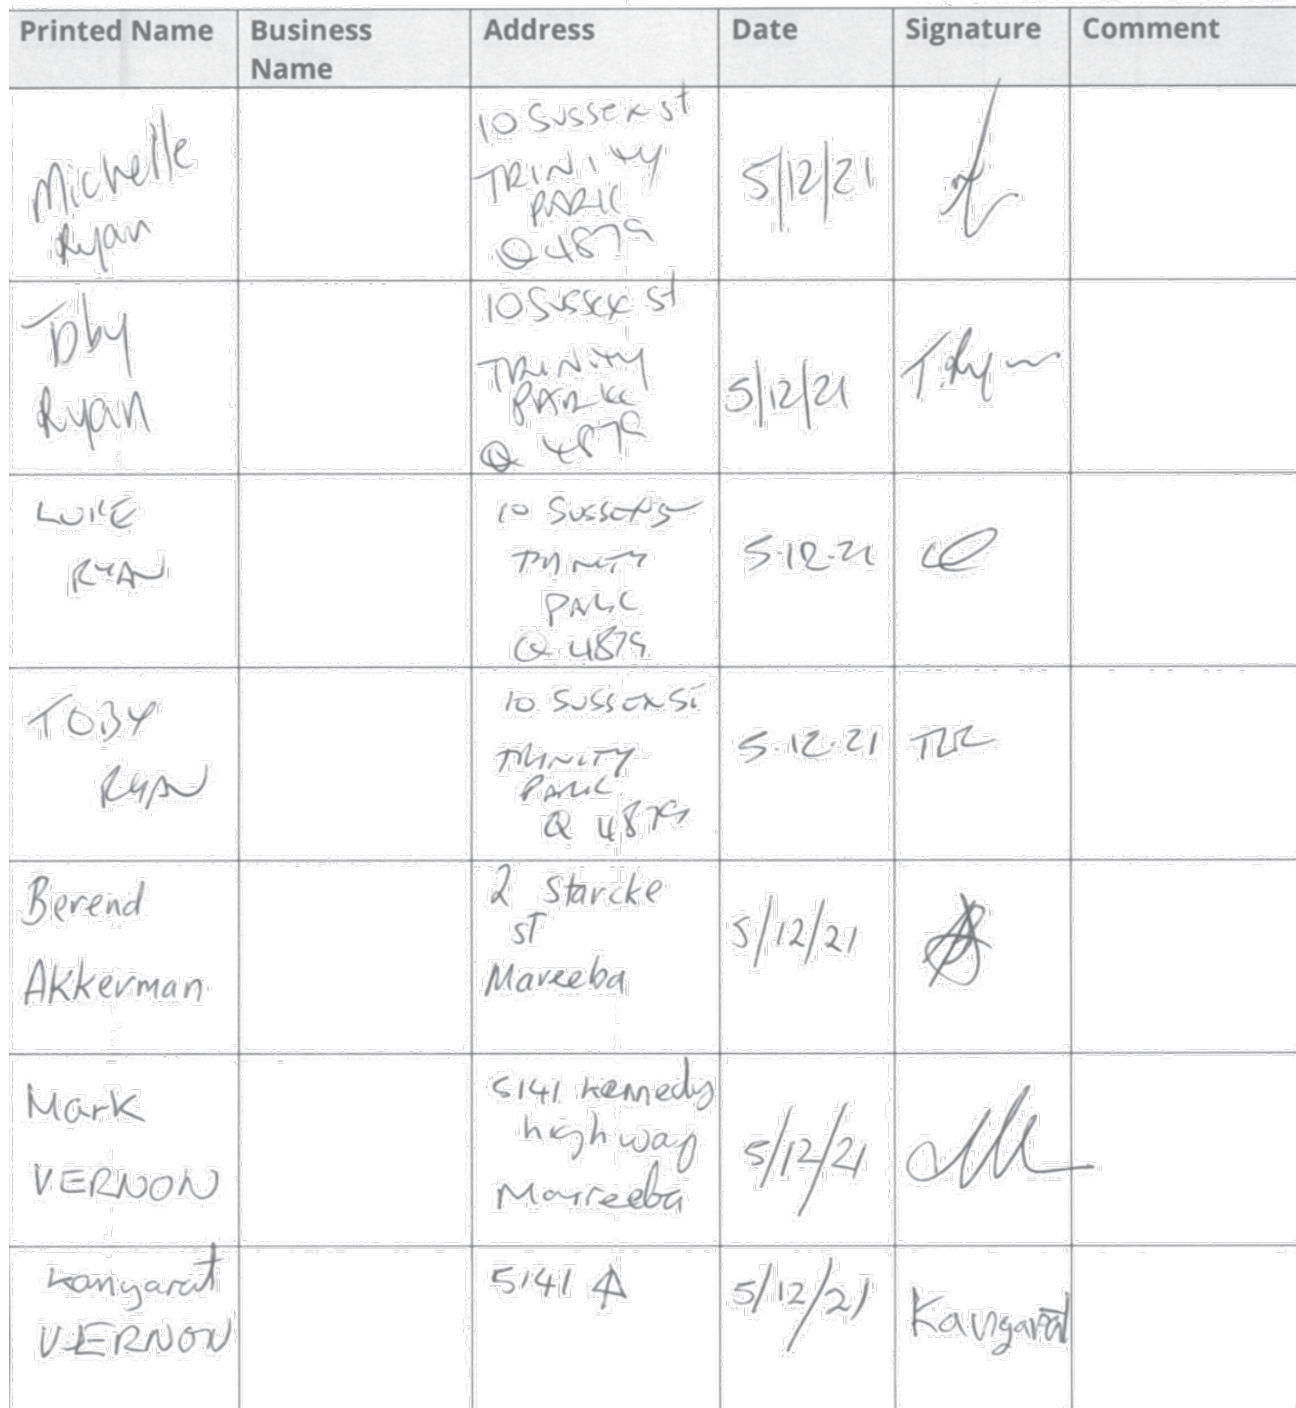 Printed Name Business Name Address Date Signature Comment
Michelle
Ryan
10 Sussex st
TRINITY
PARK
Q 4879
5/12/21
Toby
Ryan
10 Sussex st
TRINITY
PARK
Q 4879
5/12/21
T. Ryan
LUKE
RYAN
10 SUSSEX ST
TRINITY
PARK
Q 4879
5.12.21
TOBY
RYAN
10 SUSSEX ST
TRINITY
PARK
Q 4879
5.12.21
Berend
Akkerman
2 Starcke
st
Mareeba
5/12/21
Mark
VERNON
5141 Kennedy
highway
Marreeba
5/12/21
Kangarat
VERNON
5141
5/12/21
Kangarat